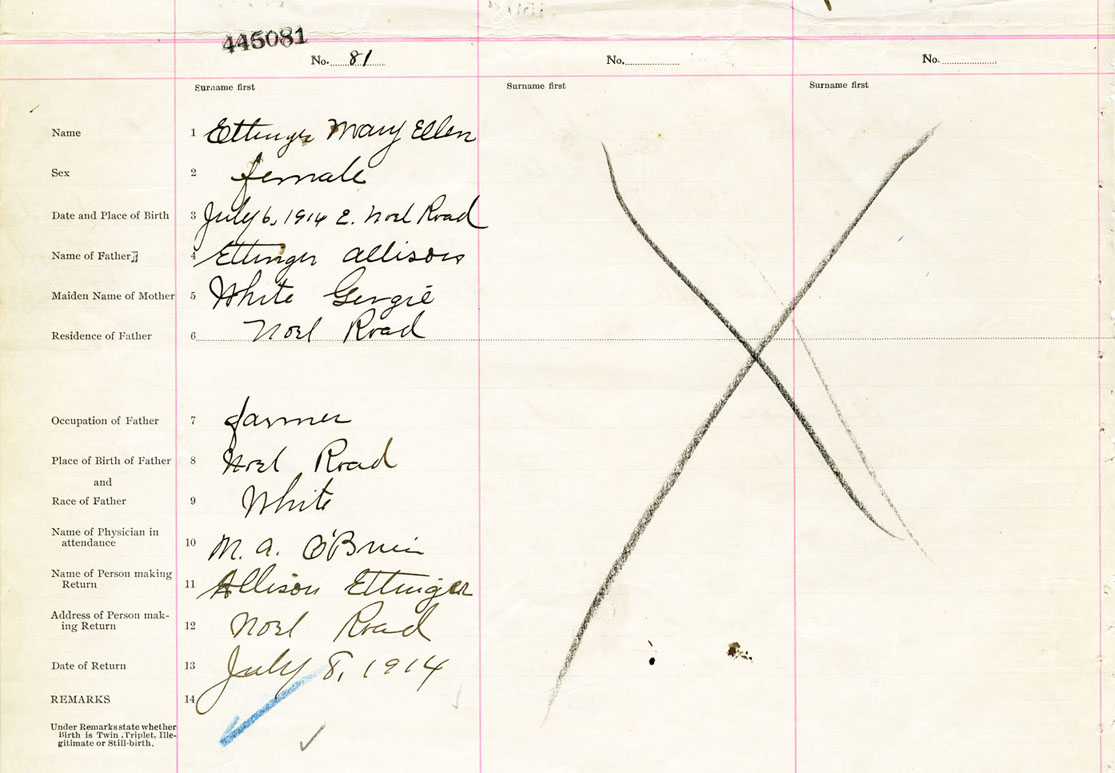 445081
No. 81 No. No.
Surname first Surname first Surname first
Name 1 Ettinger Mary Ellen
Sex 2 female
Date and Place of Birth 3 July 6, 1914 E. Noel Road
Name of Father 4 Ettinger Allison
Maiden Name of Mother 5 White Gergie
Residence of Father 6 Noel Road
Occupation of Father 7 farmer
Place of Birth of Father 8 Noel Road
and
Race of Father 9 White
Name of Physician in
attendance 10 M. A. O'Brien
Name of Person making
Return 11 Allison Ettinger
Address of Person mak-
ing Return 12 Noel Road
Date of Return 13 July 8, 1914
REMARKS 14
Under Remarks state whether
Birth is Twin, Triplet, Ille-
gitimate or Still-birth.